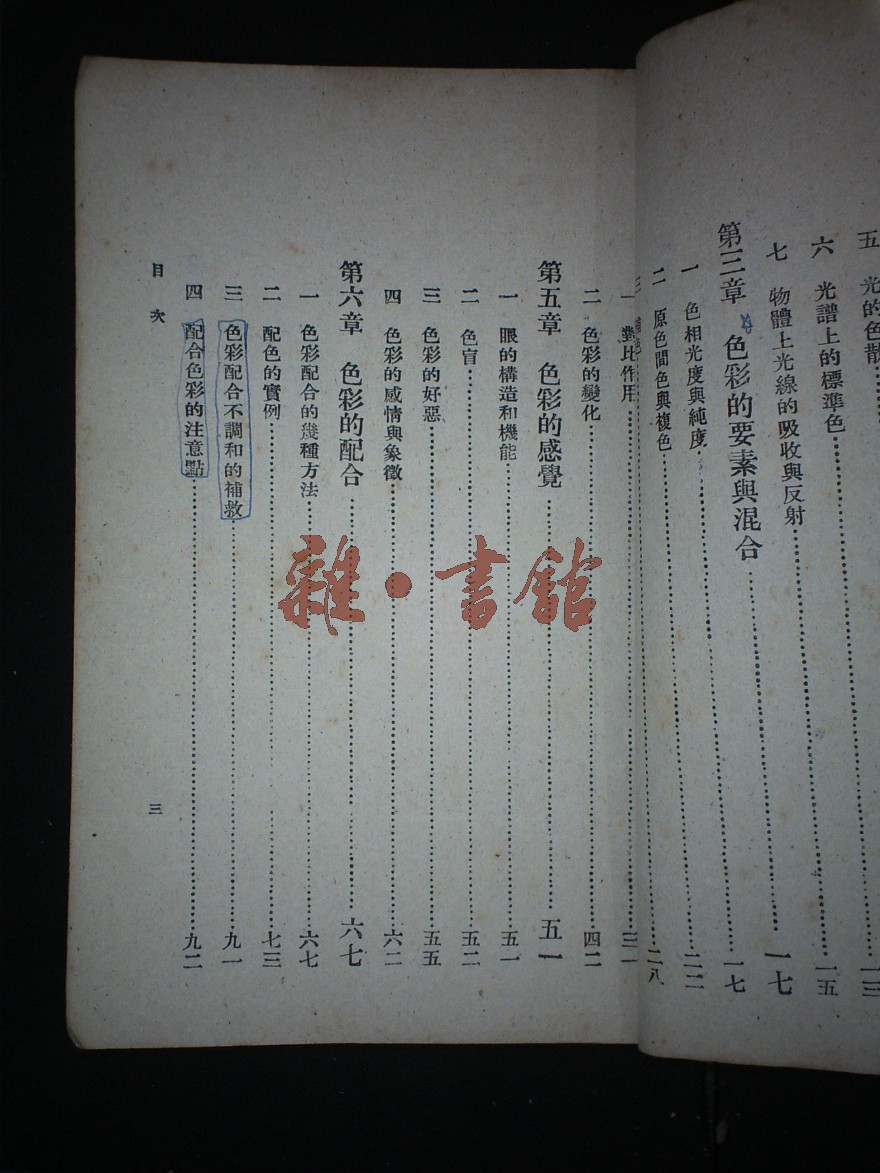 五 光的色散……一三
六 光譜上的標準色……一五
七 物體上光線的吸收與反射……一七
第三章 色彩的要素與混合……一七
一 色相光度與純度……二二
二 原色間色與複色……二八
一 對比作用……三一
二 色彩的變化……四二
第五章 色彩的感覺……五一
一 眼的構造和機能……五一
二 色盲……五二
三 色彩的好惡……五五
四 色彩的感情與象徵……六二
第六章 色彩的配合……六七
一 色彩配合的幾種方法……六七
二 配色的實例……七三
三 色彩配合不調和的補救……九一
四 配合色彩的注意點……九二
目次
三
雜·書館